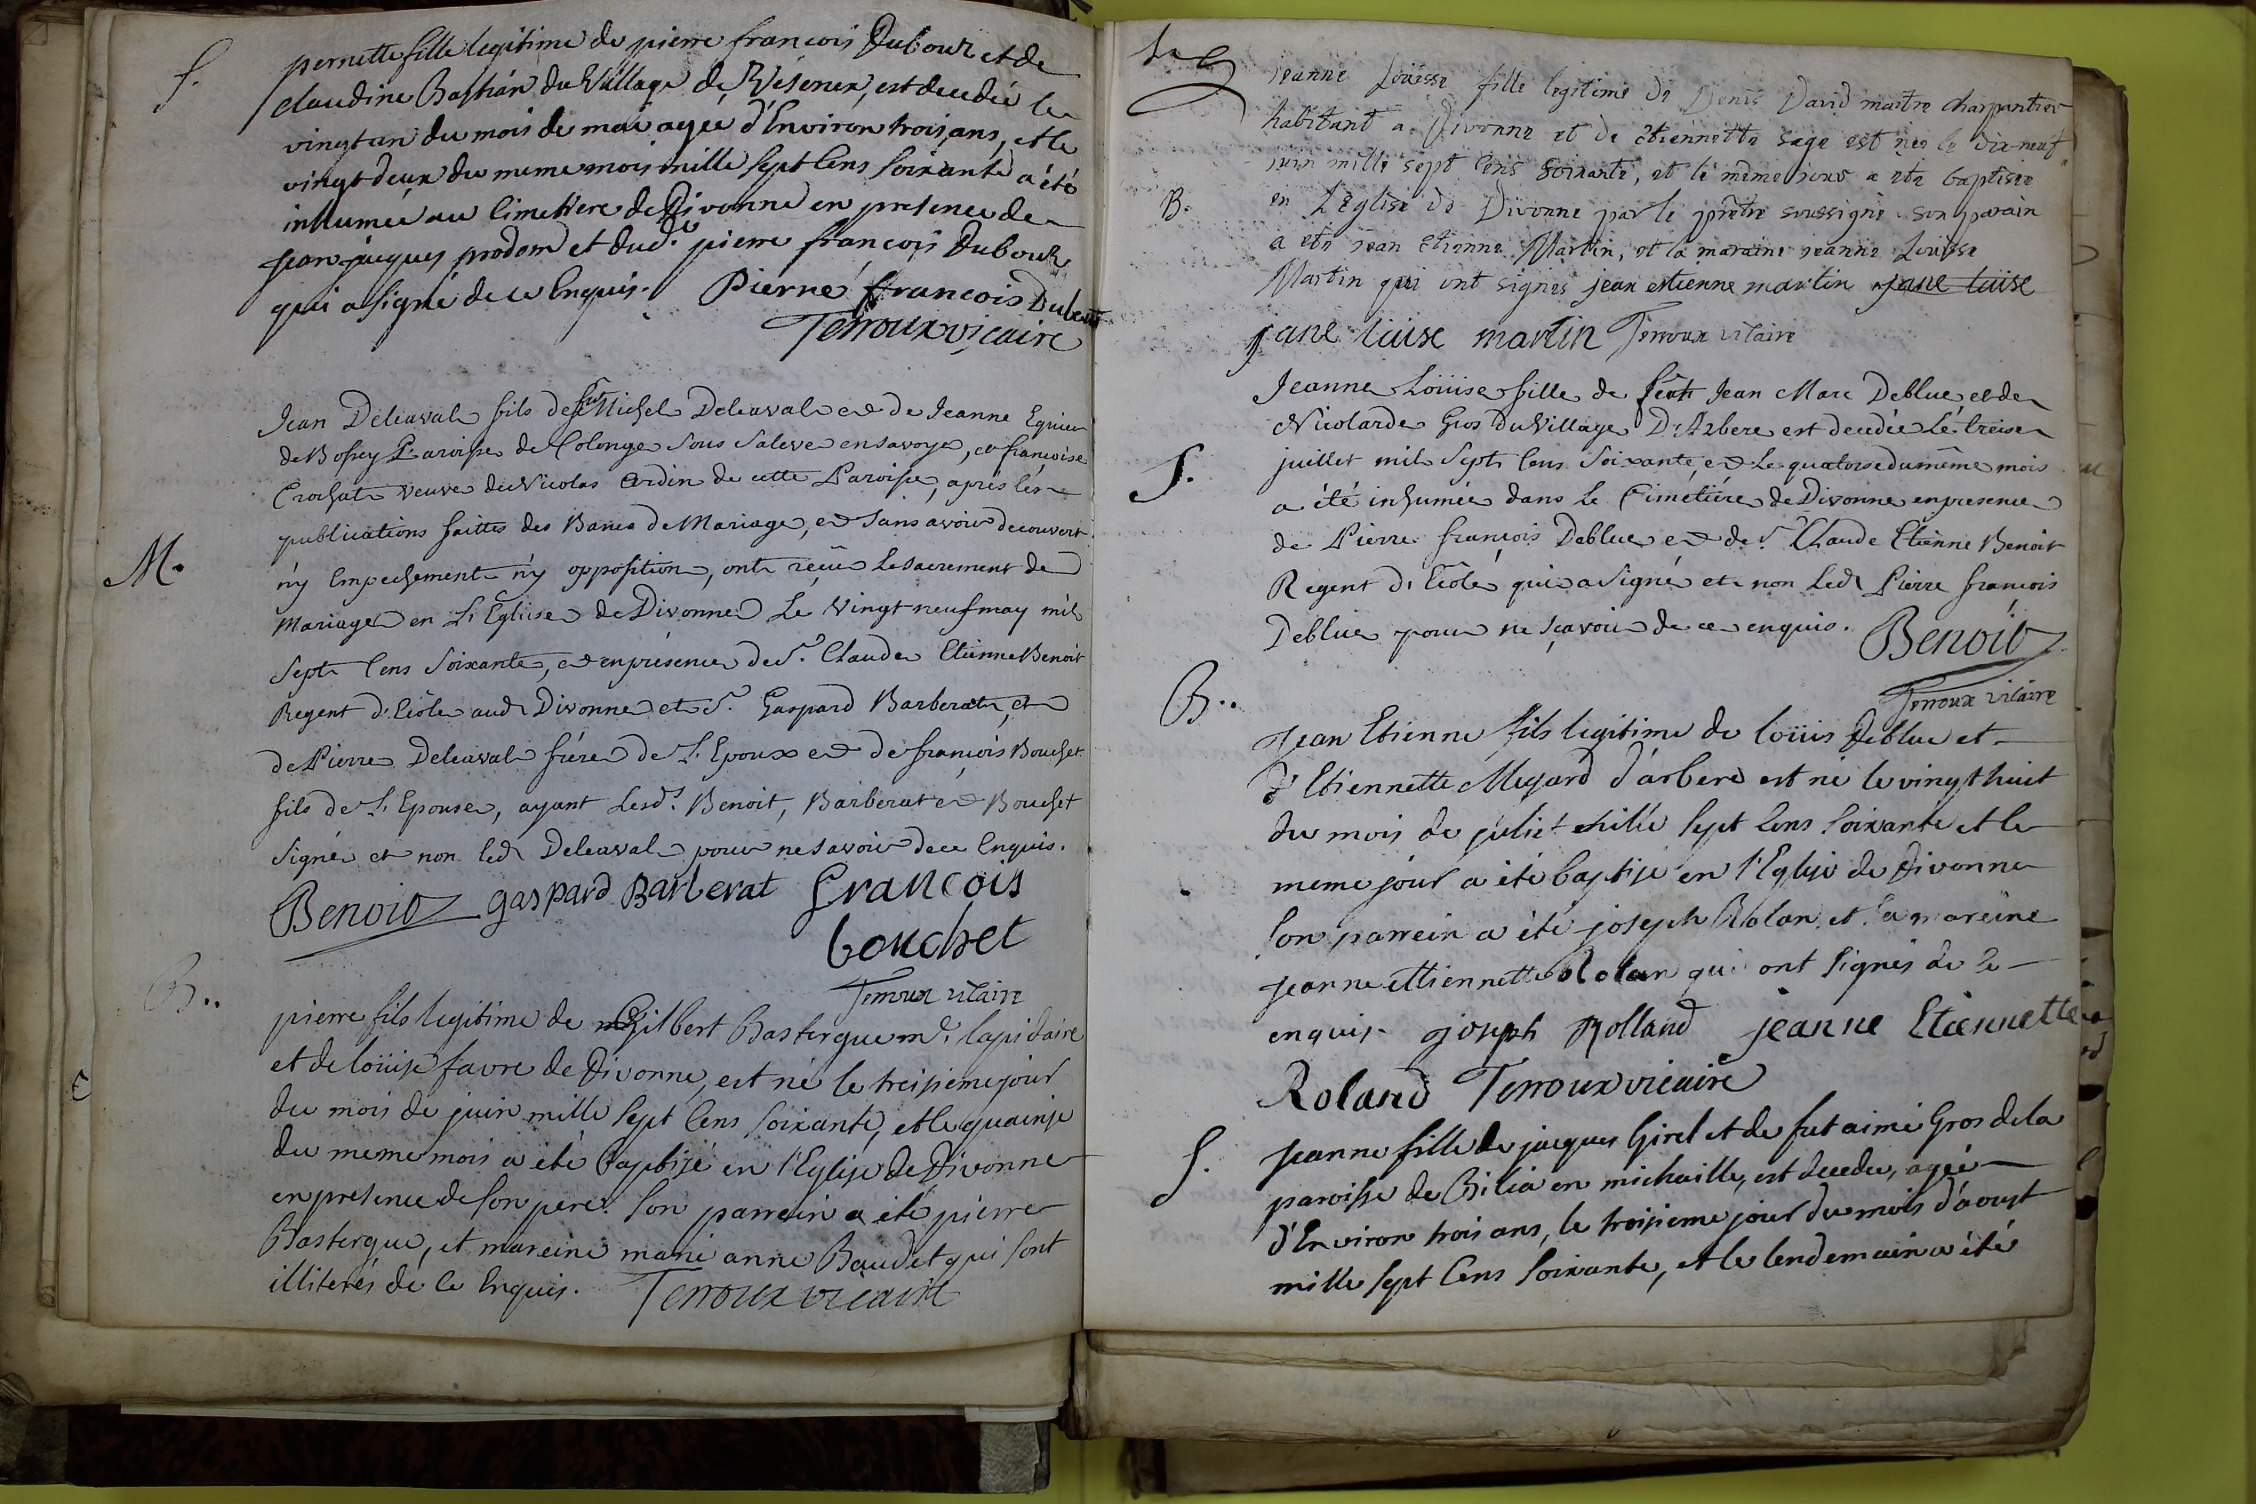 S.
pernette fille legitime de pierre françois Dubout et de
claudine Bastian du Village de Vésenex, est decedée le
vingt un du mois de mai agée d'Environ trois ans, et le
vingt deux du meme mois mille sept Cens soixante a été
inhumée au Cimetiere de Divonne en presence de
jean-jacques prodom et dud.t pierre françois Dubout
qui a signé de ce Enquis. Pierre françois Dubout
Terroux vicaire
M.
Jean Deleaval fils de fût Michel Deleaval et de Jeanne Equier
de Bossey Paroisse de Colonge sous Saleve en savoye, et françoise
Crochat veuve de Nicolas Ardin de cette Paroisse, après les
publications faittes des Bancs de Mariage, et sans avoir decouvert
n'y Empechement n'y opposition, ont reçû le sacrement de
Mariage en L'Eglise de Divonne Le Vingt neuf may mil
Sept Cens Soixante, et en présence de S.r Claude Etienne Benoit
Regent d'Ecôle aud Divonne et S.r Gaspard Barberat, et
de Pierre Deleaval frére de L'Epoux et de françois Bouchet
fils de L'Epouse, ayant Lesd.s Benoit, Barberat et Bouchet
Signé et non led Deleaval pour ne savoir de ce Enquis.
Benoit gaspard Barberat françois
bouchet
Terroux vicaire
B..
pierre fils legitime de Gilbert Bastergue m.d lapidaire
et de loüise favre de Divonne, est né le treisieme jour
du mois de juin mille sept Cens soixante, et le quainse
du meme mois a été baptisé en l'Eglise de Divonne
en presence de son pere. Son parrein a été pierre
Bastergue, et mareine marie anne Baudet qui sont
illiterés de ce Enquis. Terroux vicaire
B.
jeanne Loüisse fille legitime de Denis David maitre charpantier
habitant a Divonne et de Etiennette sage est née le dix-neuf
juin mille sept cens soixante, et le même jour a ete baptisée
en L'Eglise de Divonne par le prêtre soussigné son parain
a ete jean Etienne Martin, et la maraine jeanne Loüisse
Martin qui ont signés jean estienne martin jane luise
jane luise martin Terroux vicaire
S.
Jeanne Loüise fille de feû Jean Marc Deblue et de
Nicolarde Gros du Village D'Arbere est decedée Le treise
juillet mil Sept Cens Soixante, et Le quatorse du même mois
a été inhumée dans Le Cimetiére de Divonne en presence
de Pierre françois Deblue et de S.r Claude Etienne Benoit
Regent d'Ecôle qui a Signé et non Led Pierre françois
Deblue pour ne sçavoir de ce enquis. Benoit
Terroux vicaire
B..
Jean Etienne fils legitime de loüis Deblue et
d'Etiennette Mugard d'arbere est né le vingt huit
du mois de juliet mille sept Cens soixante et le
meme jour a été baptisé en l'Eglise de Divonne
son parrein a été joseph Rolan et la mareine
jeanne ettiennette Rolan qui ont signés de ce
enquis joseph Rolland jeanne Etiennette
Roland Terroux vicaire
S.
jeanne fille de jacques Girel et de fut aimé Gros de la
paroisse de Bilia en michaille, est decedée, agée
d'Environ trois ans, le troisieme jour du mois d'aoust
mille sept Cens soixante, et le lendemain a été